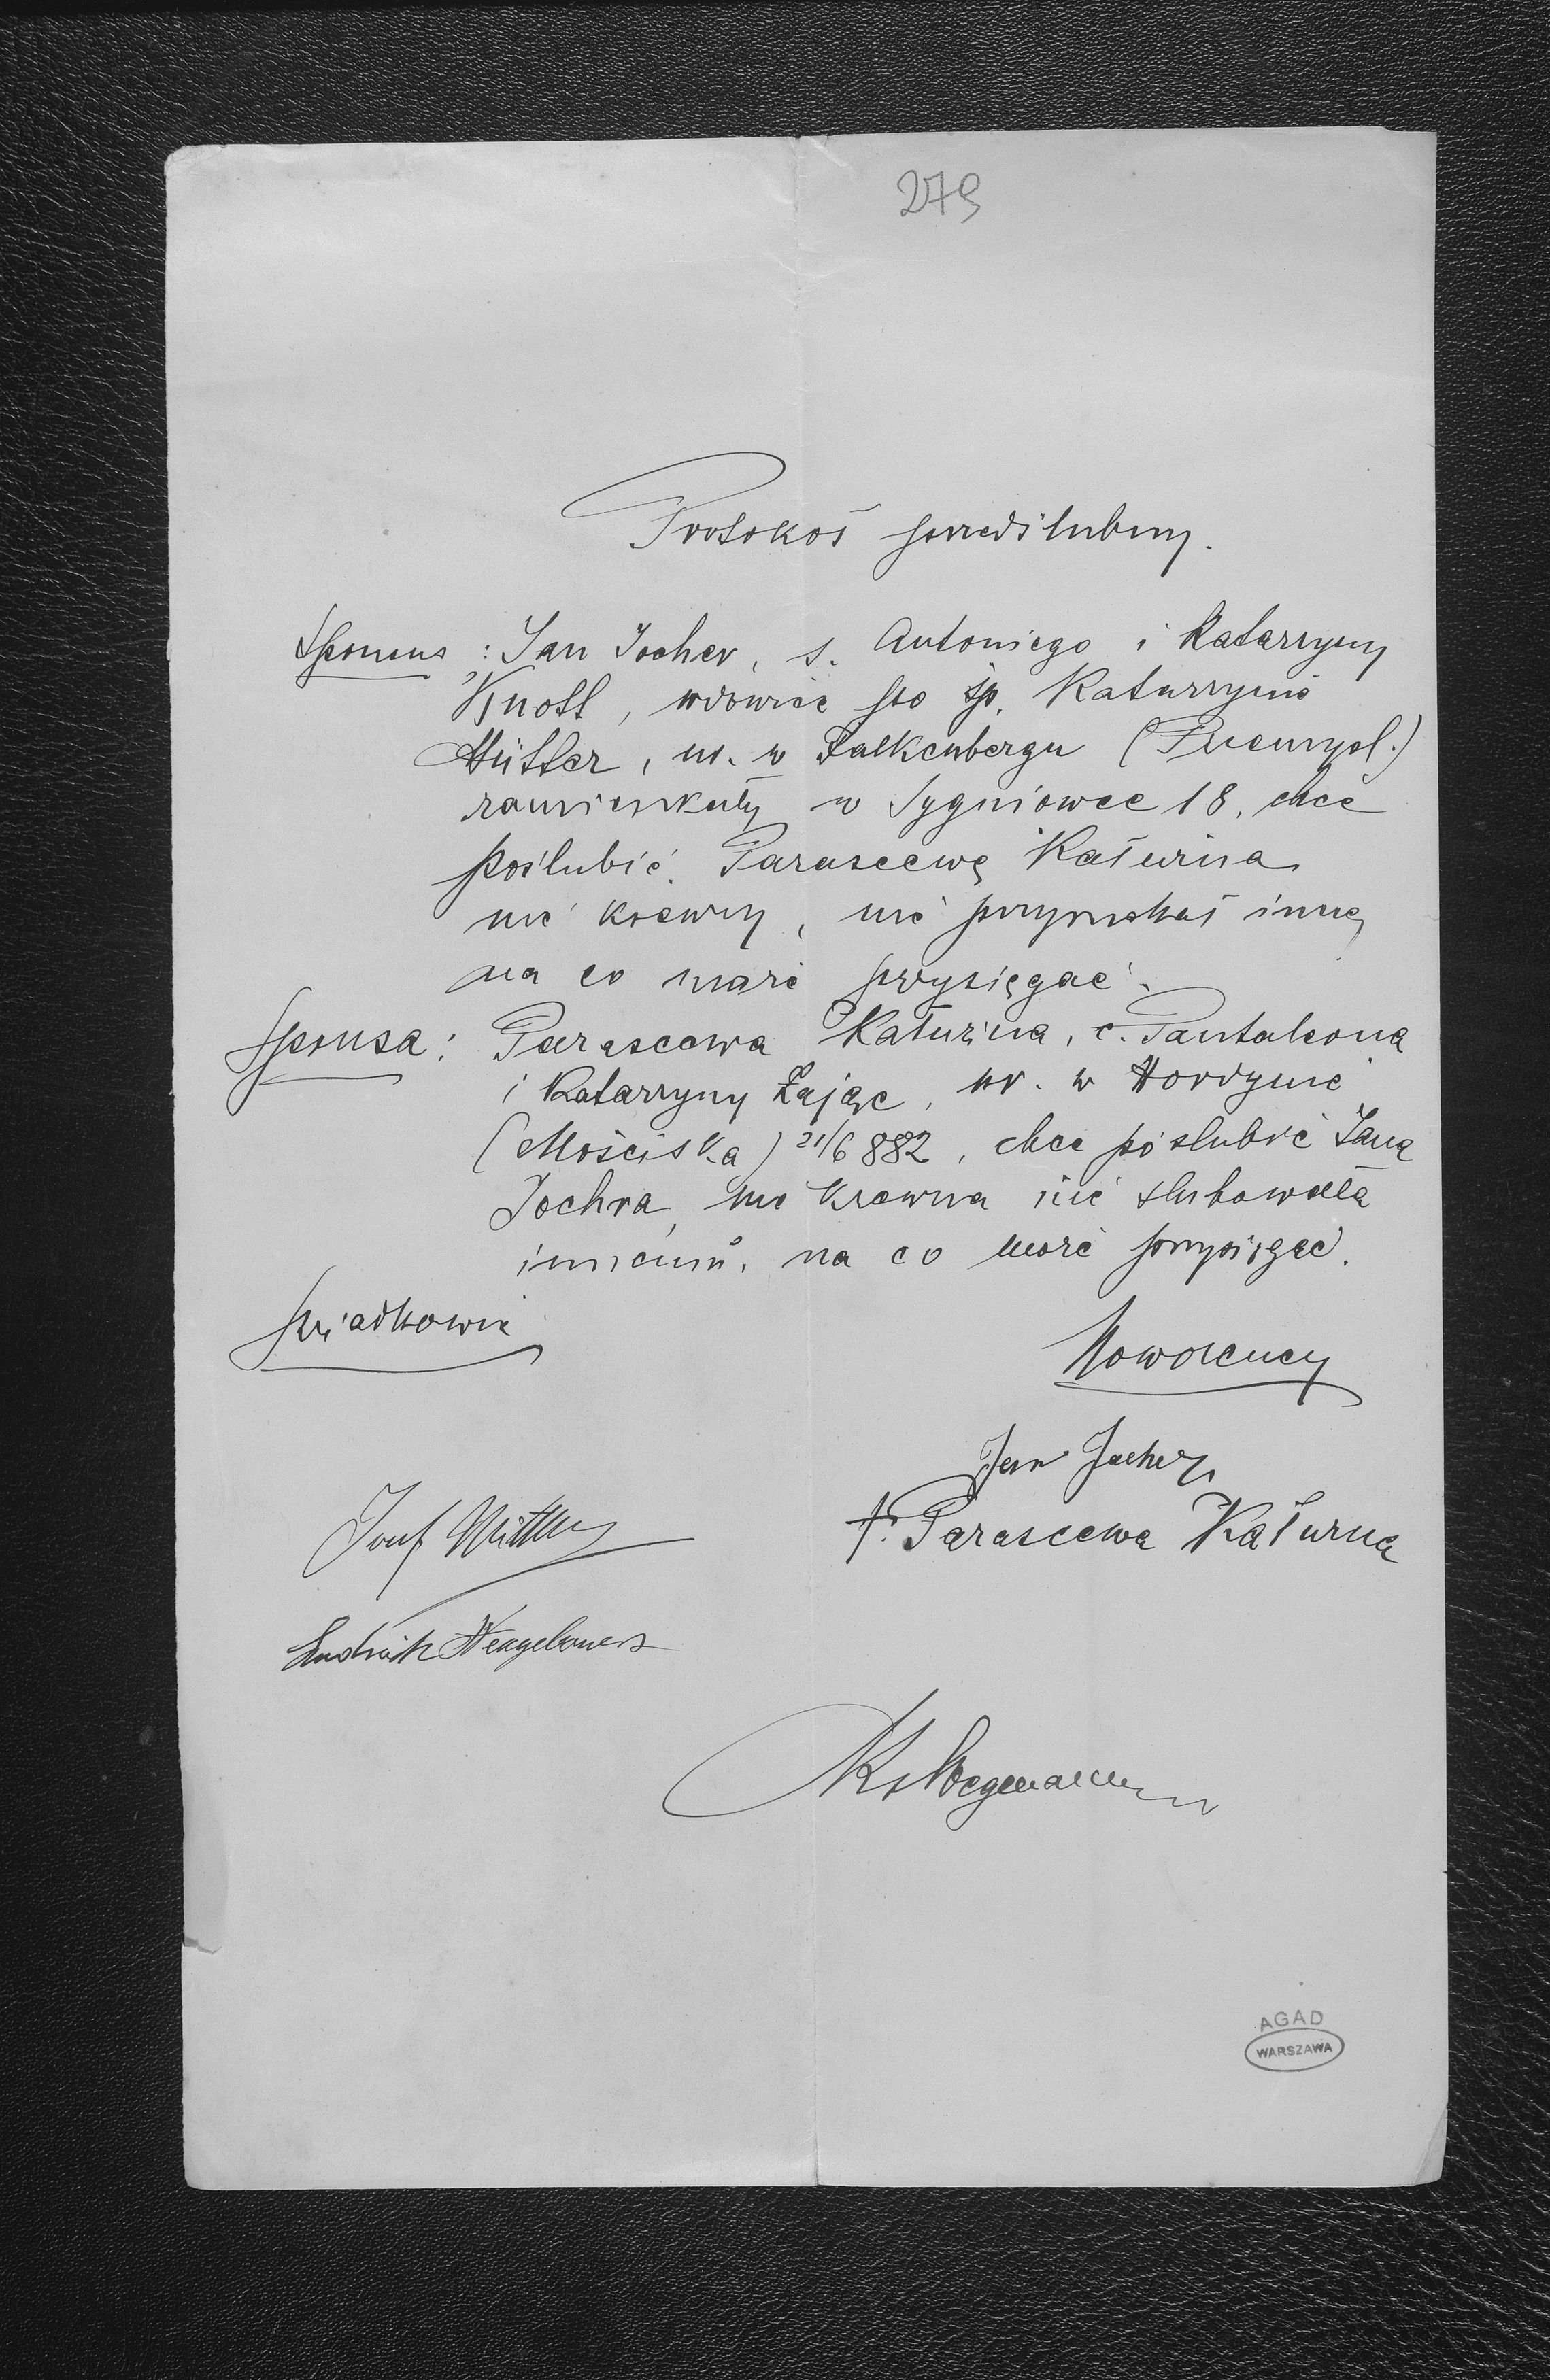 279
Protokół przedślubny.
Sponsus : Jan Jocher, s. Antoniego i Katarzyny
Knott, wdowiec po śp. Katarzynie
Müller, ur. w Falkenbergu (Przemysl.)
zamieszkały w Sygniowce 18, chce
poślubić Parascewę Katurina
nie krewny, nie przyrzekał innej
na co może przysięgać.
Sponsa : Parascewa Katurina, c. Pantaleona
i Katarzyny Zając, ur. w Hordynie
(Mościska) 21/6 882, chce poslubić Jana
Jochra, nie krewna nie slubowała
innemu, na co może przysięgać.
Świadkowie
Nowożency
Jan Jocher
†. Parascewa Katurna
Josef
Ludwik
Ks Wegemann
AGAD
WARSZAWA